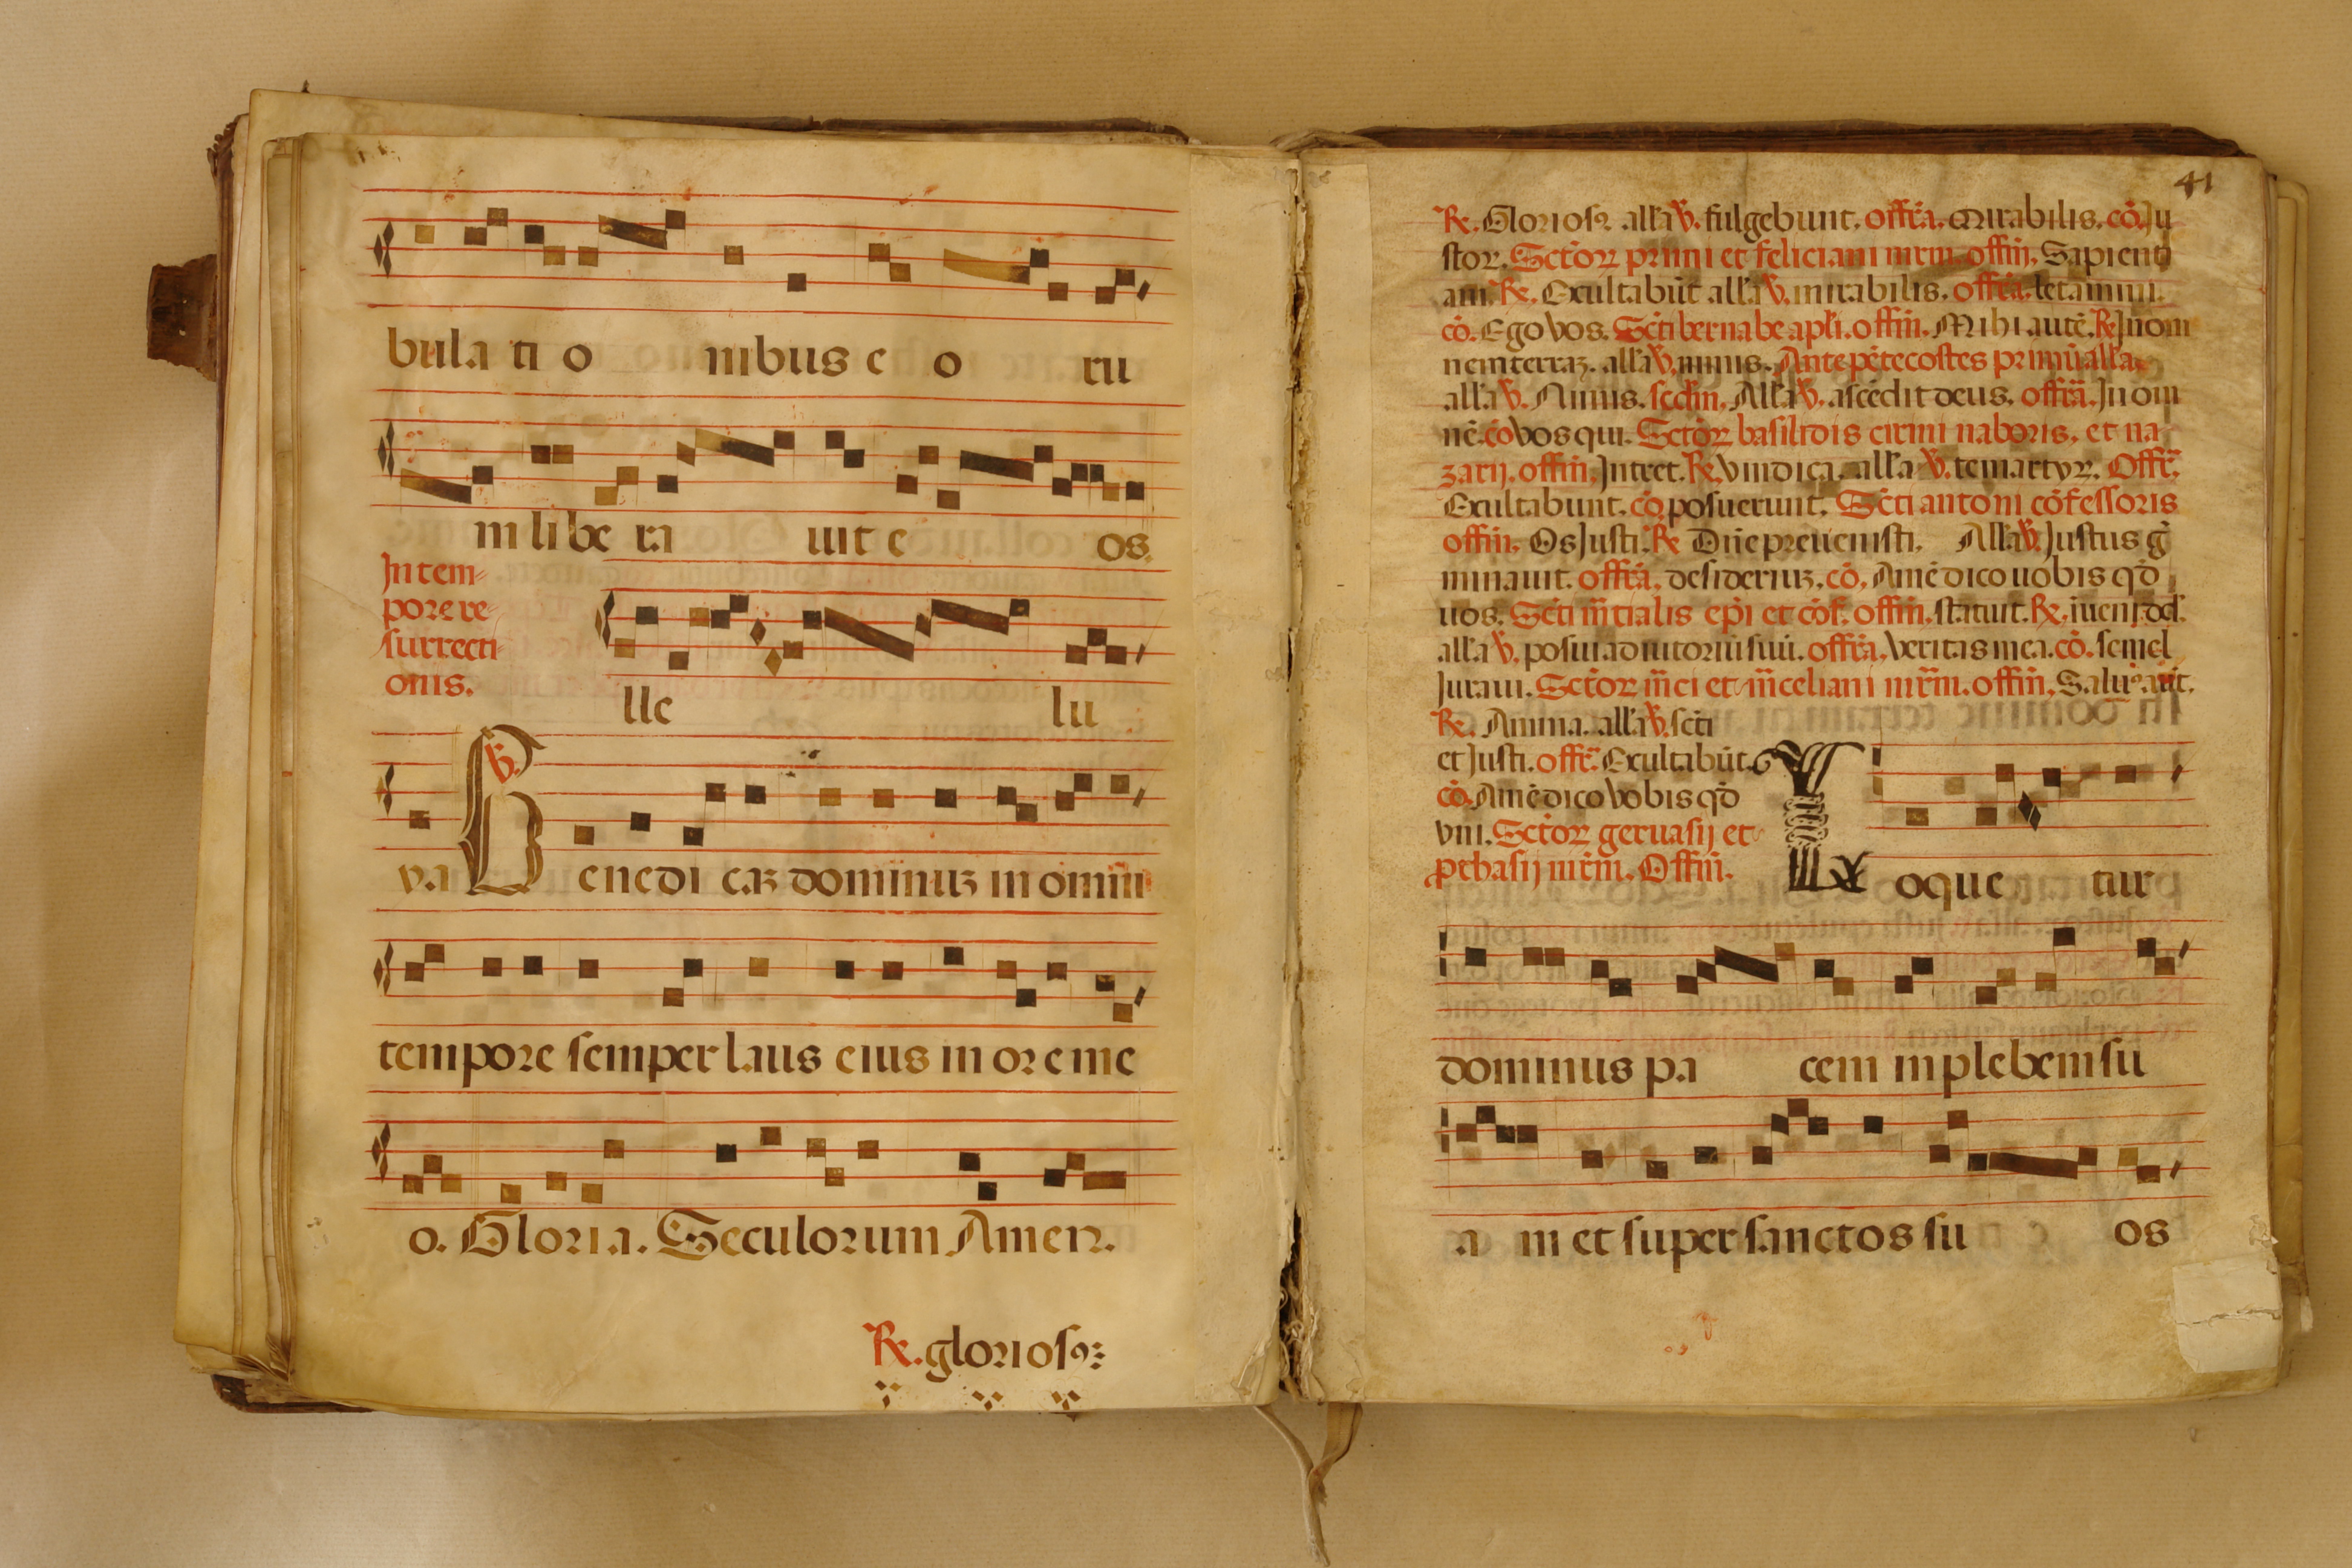 bula ti o nibus e o ru
m libe ra uit e os.
In tem-
pore re-
surrecti-
onis.
lle lu
va B enedi caʒ dominuʒ in omni
tempore semper laus eius in ore me
o. Gloria. Seculorum Amen.
℟. glorioſꝰ
41
℟. Glorioſꝰ. all'a ℣. fulgebunt. offr̄a. Mirabilis. cō. Ju
stoꝝ. Sctōꝝ primi et feliciani mrm̄. offiī. Sapienti
am. ℟. Exultabūt all'a ℣. mirabilis. offr̄a. letamini.
cō. Ego vos. Scti bernabe apl'i. offiī. Mihi autē. ℟. In om
nem terraʒ. all'a ℣. nimis. Ante pētecostes primū all'a.
all'a ℣. Nimis. scdm̄. All'a ℣. ascēdit deus. offr̄a. In om
nē. cō vos qui. Sctōꝝ basilidis cirini naboris. et na
zarij. offiī. Intret. ℟. vindica. all'a ℣. te martyꝝ. Offr̄.
Exultabunt. cō. posuerunt. Scti antoni cōfessoris
offiī. Os Justi. ℟ Dn̄e preuenisti. All'a ℣. Justus g̃
minauit. offr̄a. desideriuʒ. cō. Amē dico uobis qd̄
uos. Scti m̄tialis epi et cōf. offiī. statuit. ℟. iueni dd̄.
all'a ℣. posui adiutoriū suū. offr̄a. veritas mea. cō. semel
Juraui. Sctōꝝ m̄ci et m̄celiani mr̄m. offiī. Salus aūt.
℟. Anima. all'a ℣. scti
et Justi. offr̄. Exultabūt.
cō. Amē dico vobis qd̄
vni. Sctōꝝ geruasij et
ꝓthasij mr̄m. Offiī.
L oque tur
dominus pa cem in plebem su
a m et super sanctos su os